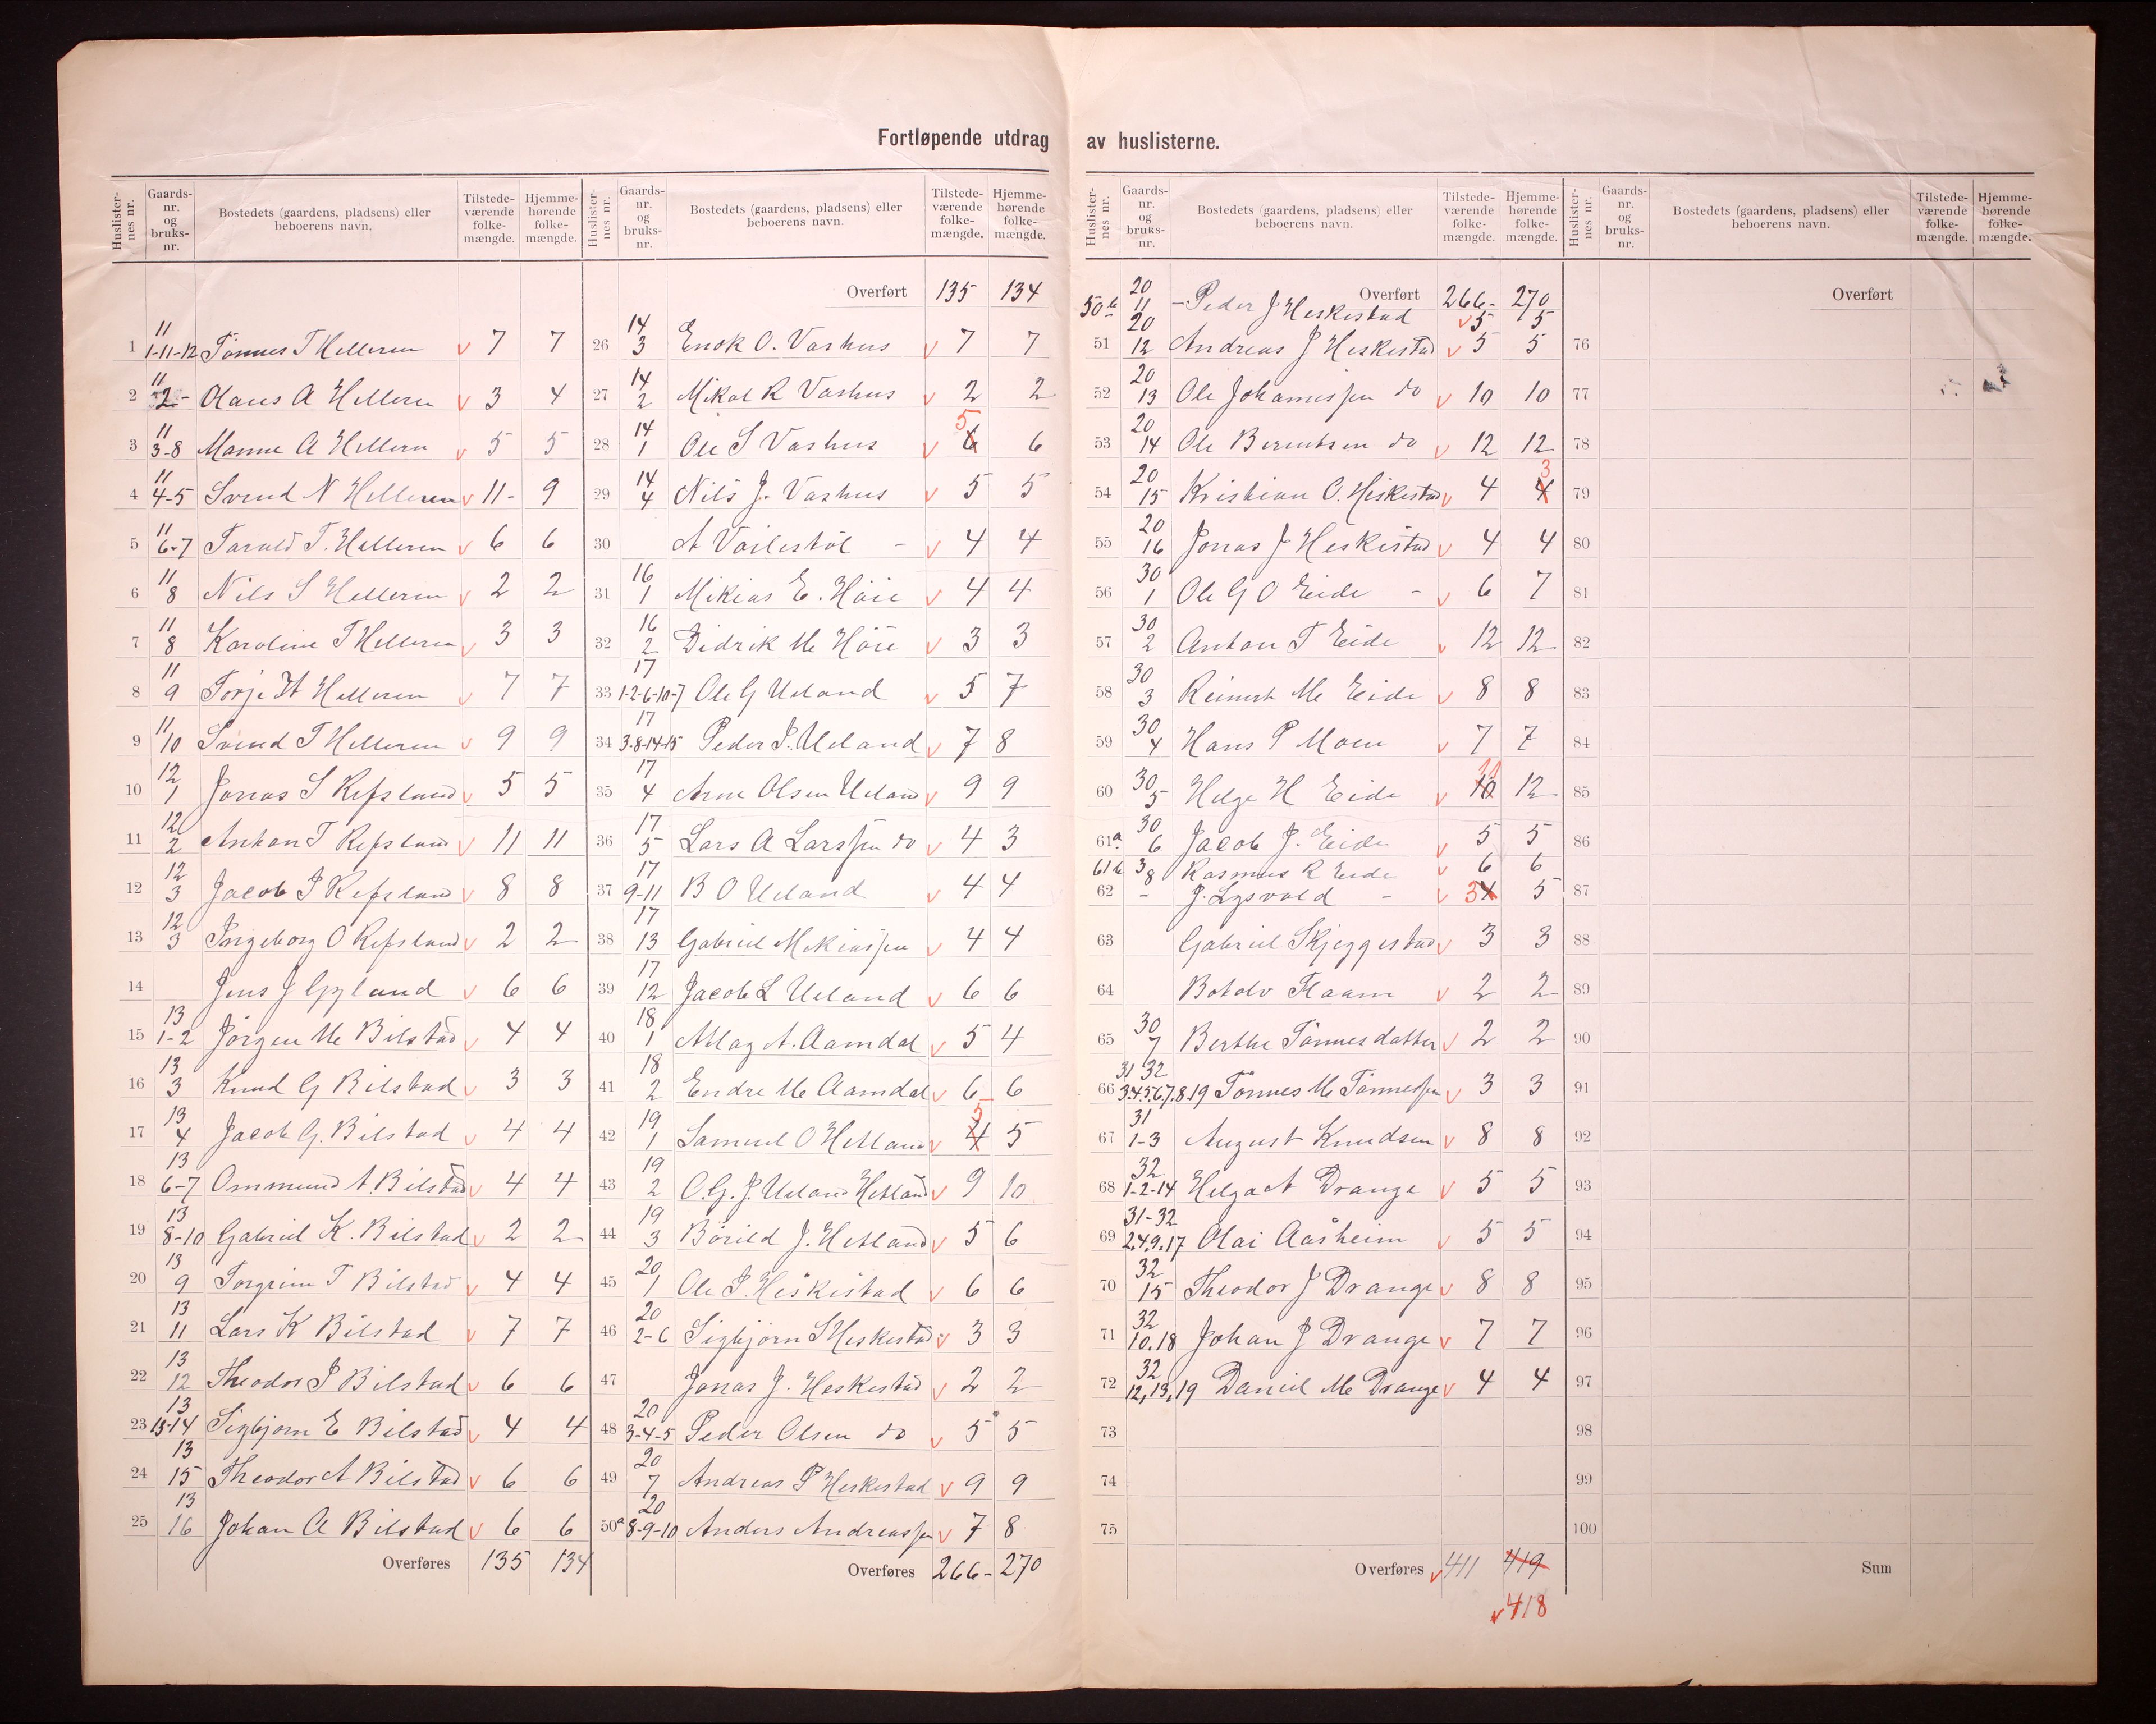 Fortløpende utdrag av huslisterne.
Huslisternes nr. Gaards-nr. og bruks-nr. Bostedets (gaardens, pladsens) eller beboerens navn. Tilstedeværende folkemængde. Hjemmehørende folkemængde.
1 11 1-11-12 Tönnes T Helleren v 7 7
2 11 2- Olaus A Helleren v 3 4
3 11 3-8 Manne A Helleren v 5 5
4 11 4-5 Svend N Helleren v 11- 9
5 11 6-7 Tarald T. Helleren v 6 6
6 11 8 Nils S Helleren v 2 2
7 11 8 Karoline T Helleren v 3 3
8 11 9 Torje H Helleren v 7 7
9 11 10 Svend T Helleren v 9 9
10 12 1 Jonas S Refsland v 5 5
11 12 2 Anton T Refsland v 11 11
12 12 3 Jacob J Refsland v 8 8
13 12 3 Ingeborg O Refsland v 2 2
14 Jens J Gyland v 6 6
15 13 1-2 Jörgen M Bilstad v 4 4
16 13 3 Knud G Bilstad v 3 3
17 13 4 Jacob G. Bilstad v 4 4
18 13 6-7 Ommund A. Bilstad v 4 4
19 13 8-10 Gabriel K. Bilstad v 2 2
20 13 9 Torgrim T Bilstad v 4 4
21 13 11 Lars K Bilstad v 7 7
22 13 12 Theodor J Bilstad v 6 6
23 13 13-14 Sigbjorn E Bilstad v 4 4
24 13 15 Theodor A Bilstad v 6 6
25 13 16 Johan A Bilstad v 6 6
Overføres 135 134
Huslisternes nr. Gaards-nr. og bruks-nr. Bostedets (gaardens, pladsens) eller beboerens navn. Tilstedeværende folkemængde. Hjemmehørende folkemængde.
Overført 135 134
26 14 3 Enok O. Vashus v 7 7
27 14 2 Mikal R Vashus v 2 2
28 14 1 Ole S Vashus v 6 5 6
29 14 4 Nils J. Vashus v 5 5
30 A - v 4 4
31 16 1 Mikias E. Höie v 4 4
32 16 2 Didrik M Höie v 3 3
33 17 1-2-6-10-7 Ole G Ueland v 5 7
34 17 3-8-14-15 Peder P. Ueland v 7 8
35 17 4 Arne Olsen Ueland v 9 9
36 17 5 Lars A Larssen do v 4 3
37 17 9-11 B O Ueland v 4 4
38 17 13 Gabriel Mikiassen v 4 4
39 17 12 Jacob L Ueland v 6 6
40 18 1 Atlag A. Aamdal v 5 4
41 18 2 Endre M Aamdal v 6 6
42 19 1 Samuel O Hetland v 4 5 5
43 19 2 O.G.J. Ueland Hetland v 9 10
44 19 3 Börild J. Hetland v 5 6
45 20 1 Ole P. Heskestad v 6 6
46 20 2-6 Sigbjörn S Heskestad v 3 3
47 Jonas J. Heskestad v 2 2
48 20 3-4-5 Peder Olsen do v 5 5
49 20 7 Andreas P Heskestad v 9 9
50a 20 8-9-10 Anders Andreassen v 7 8
Overføres 266- 270
Huslisternes nr. Gaards-nr. og bruks-nr. Bostedets (gaardens, pladsens) eller beboerens navn. Tilstedeværende folkemængde. Hjemmehørende folkemængde.
Overført 266- 270
50b 20 11 - Peder J Heskestad v 5 5
51 20 12 Andreas J Heskestad v 5 5
52 20 13 Ole Johannessen do v 10 10
53 20 14 Ole Berentsen do v 12 12
54 20 15 Kristian O. Heskestad v 4 4 3
55 20 16 Jonas J Heskestad v 4 4
56 30 1 Ole G O Eide - v 6 7
57 30 2 Anton T Eide v 12 12
58 30 3 Reinert M Eide v 8 8
59 30 4 Hans P Moen v 7 7
60 30 5 Helge H Eide v 10 11 12
61a. 30 6 Jacob J. Eide v 5 5
61b 3 8 Rasmus R Eide v 6 6
62 - J. Lysvold - v 3 4 5
63 Gabriel Skjeggestad v 3 3
64 Botolv Flaam v 2 2
65 30 7 Berthe Tönnesdatter v 2 2
66 31 32 3.4.5.6.7.8.19 Tönnes M Tönnessen v 3 3
67 31 1-3 August Knudsen v 8 8
68 32 1-2-14 Helge A Drange v 5 5
69 31-32 2.4.9.17 Olai Aasheim v 5 5
70 32 15 Theodor J Drange v 8 8
71 32 10.18 Johan J Drange v 7 7
72 32 12,13,19 Daniel M Drange v 4 4
73
74
75
Overføres v 411 419
v 418
Huslisternes nr. Gaards-nr. og bruks-nr. Bostedets (gaardens, pladsens) eller beboerens navn. Tilstedeværende folkemængde. Hjemmehørende folkemængde.
Overført
76
77
78
79
80
81
82
83
84
85
86
87
88
89
90
91
92
93
94
95
96
97
98
99
100
Sum